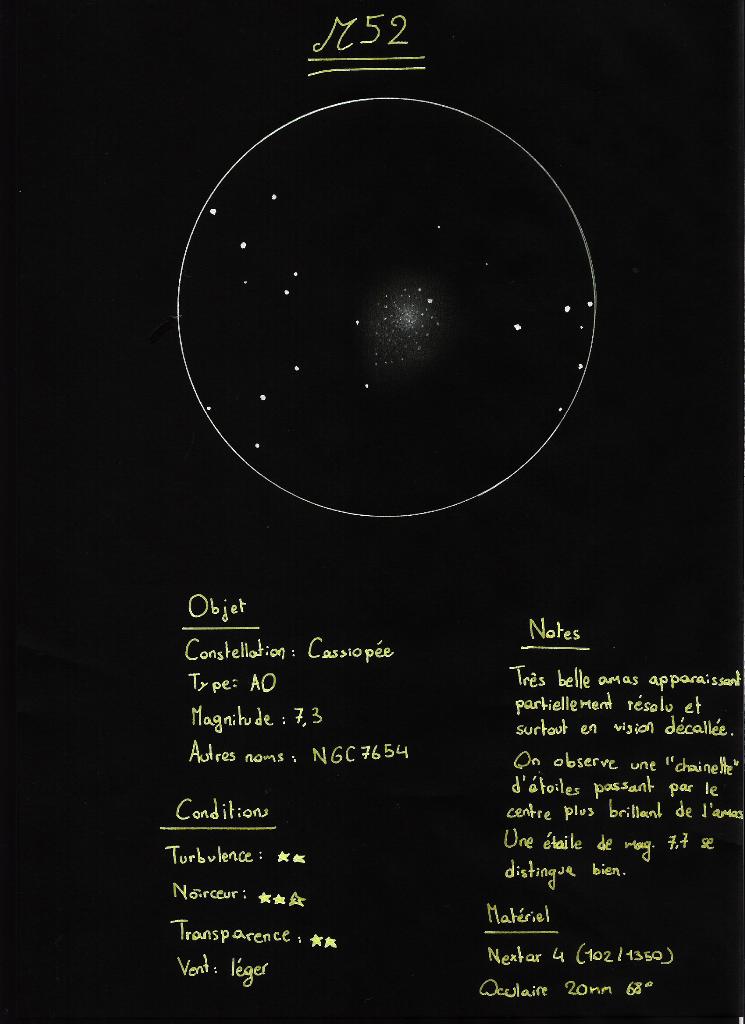 M52
Objet
Constellation : Cassiopée
Type : AO
Magnitude : 7,3
Autres noms : NGC7654
Conditions
Turbulence : ★★
Noirceur : ★★☆
Transparence : ★★
Vent : léger
Notes
Très belle amas apparaissant
partiellement résolu et
surtout en vision décallée.
On observe une "chainette"
d'étoiles passant par le
centre plus brillant de l'amas
Une étoile de mag. 7,7 se
distingue bien.
Matériel
Nexstar 4 (102/1350)
Oculaire 20mm 68°